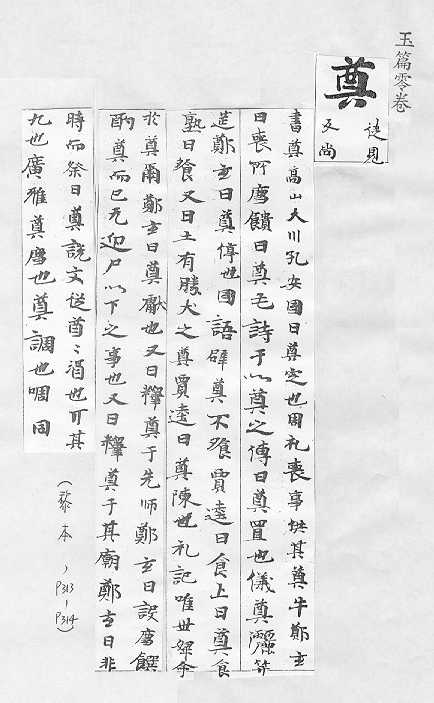 玉篇零卷
奠
徒見
反尚
書奠高山大川孔安國曰奠定也周礼喪事共其奠牛鄭玄
曰喪所廌饋曰奠毛詩于以奠之傳曰奠置也儀奠
鄭玄曰奠停也國語辟奠不飡賈逵曰食上曰奠食
熟曰飡又曰士有豚犬之奠賈逵曰奠陳也礼記唯世婦命
於奠爾鄭玄曰奠獻也又曰釋奠于先師鄭玄曰設廌饌
酌奠而已无迎尸以下之事也又曰釋奠于其廟鄭玄曰非
時而祭曰奠說文從酋〻酒也丌其
丌也廣雅奠廌也奠調也啁同
(黎本,P313-P314)